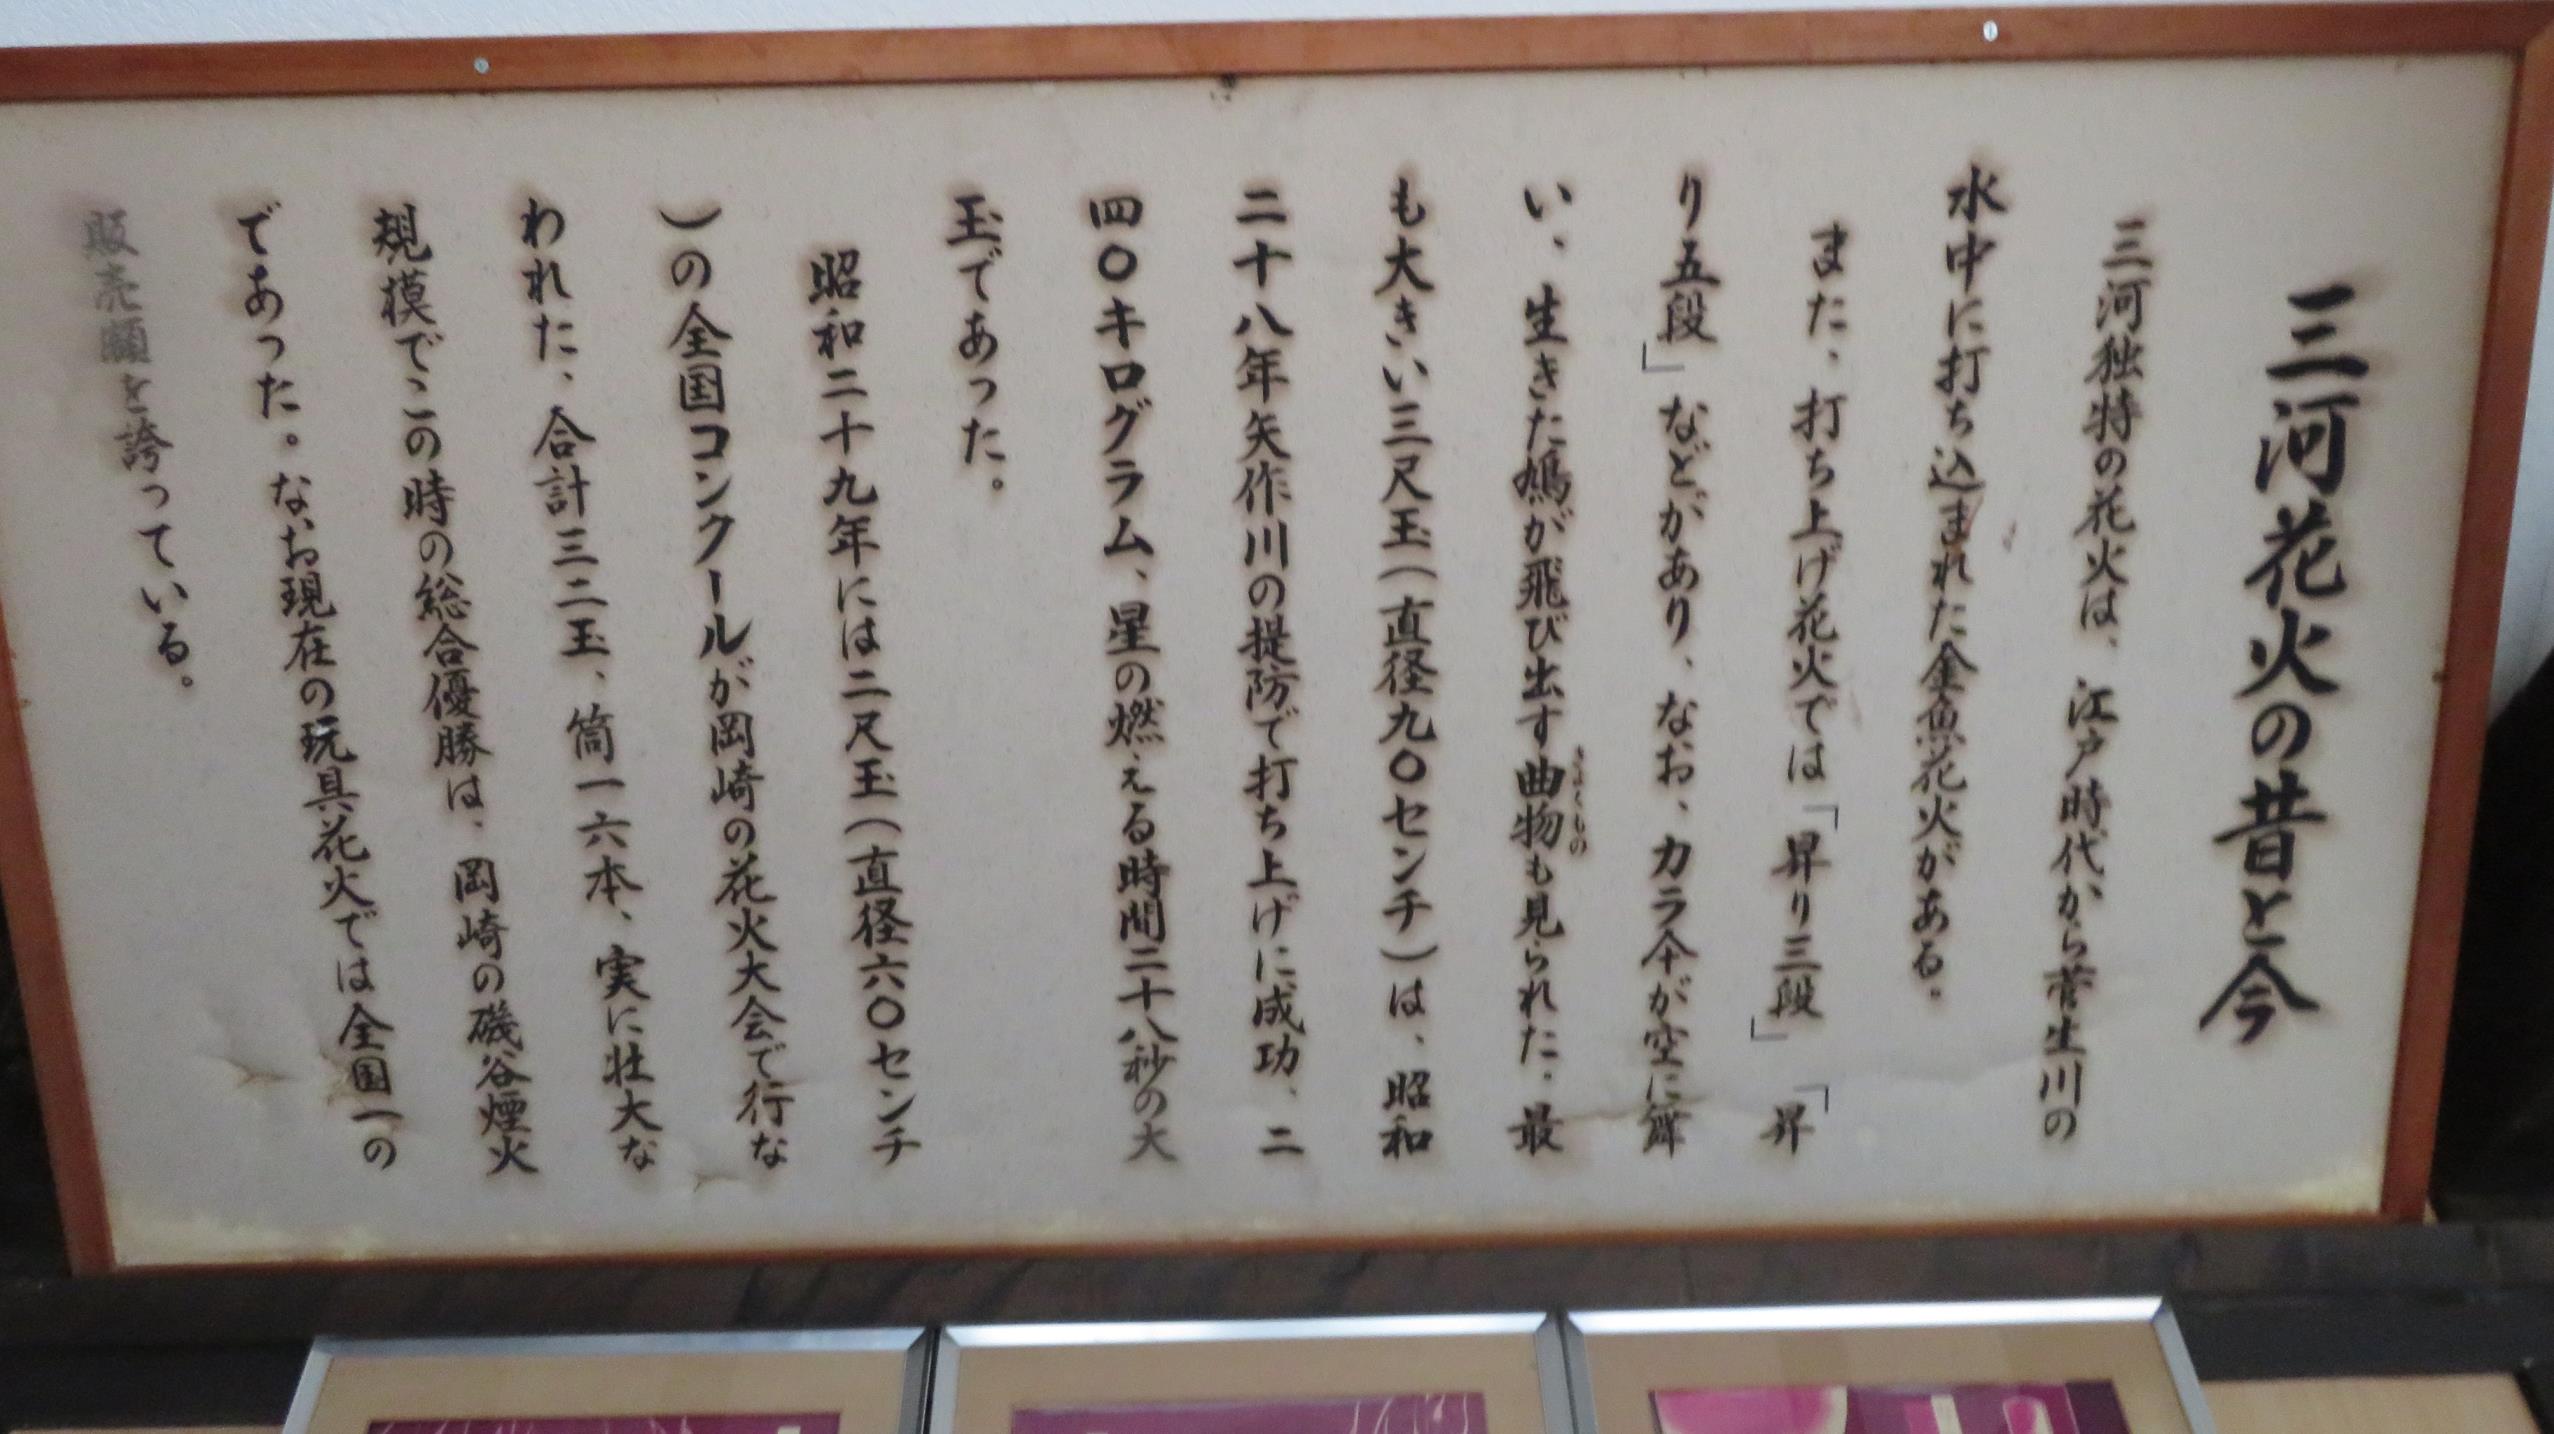 三河花火の昔と今
三河独特の花火は、江戸時代から菅生川の
水中に打ち込まれた金魚花火がある。
また、打ち上げ花火では「昇り三段」「昇
り五段」などがあり、なお、カラ傘が空に舞
い、生きた鳩が飛び出す曲物も見られた。最
きょくもの
も大きい三尺玉(直径九〇センチ)は、昭和
二十八年矢作川の提防で打ち上げに成功、二
四〇キログラム、星の燃える時間二十八秒の大
玉であった。
昭和二十九年には二尺玉(直径六〇センチ
)の全国コンクールが岡崎の花火大会で行な
われた、合計三二玉、筒一六本、実に壮大な
規模でこの時の総合優勝は、岡崎の磯谷煙火
であった。なお現在の玩具花火では全国一の
販売額を誇っている。